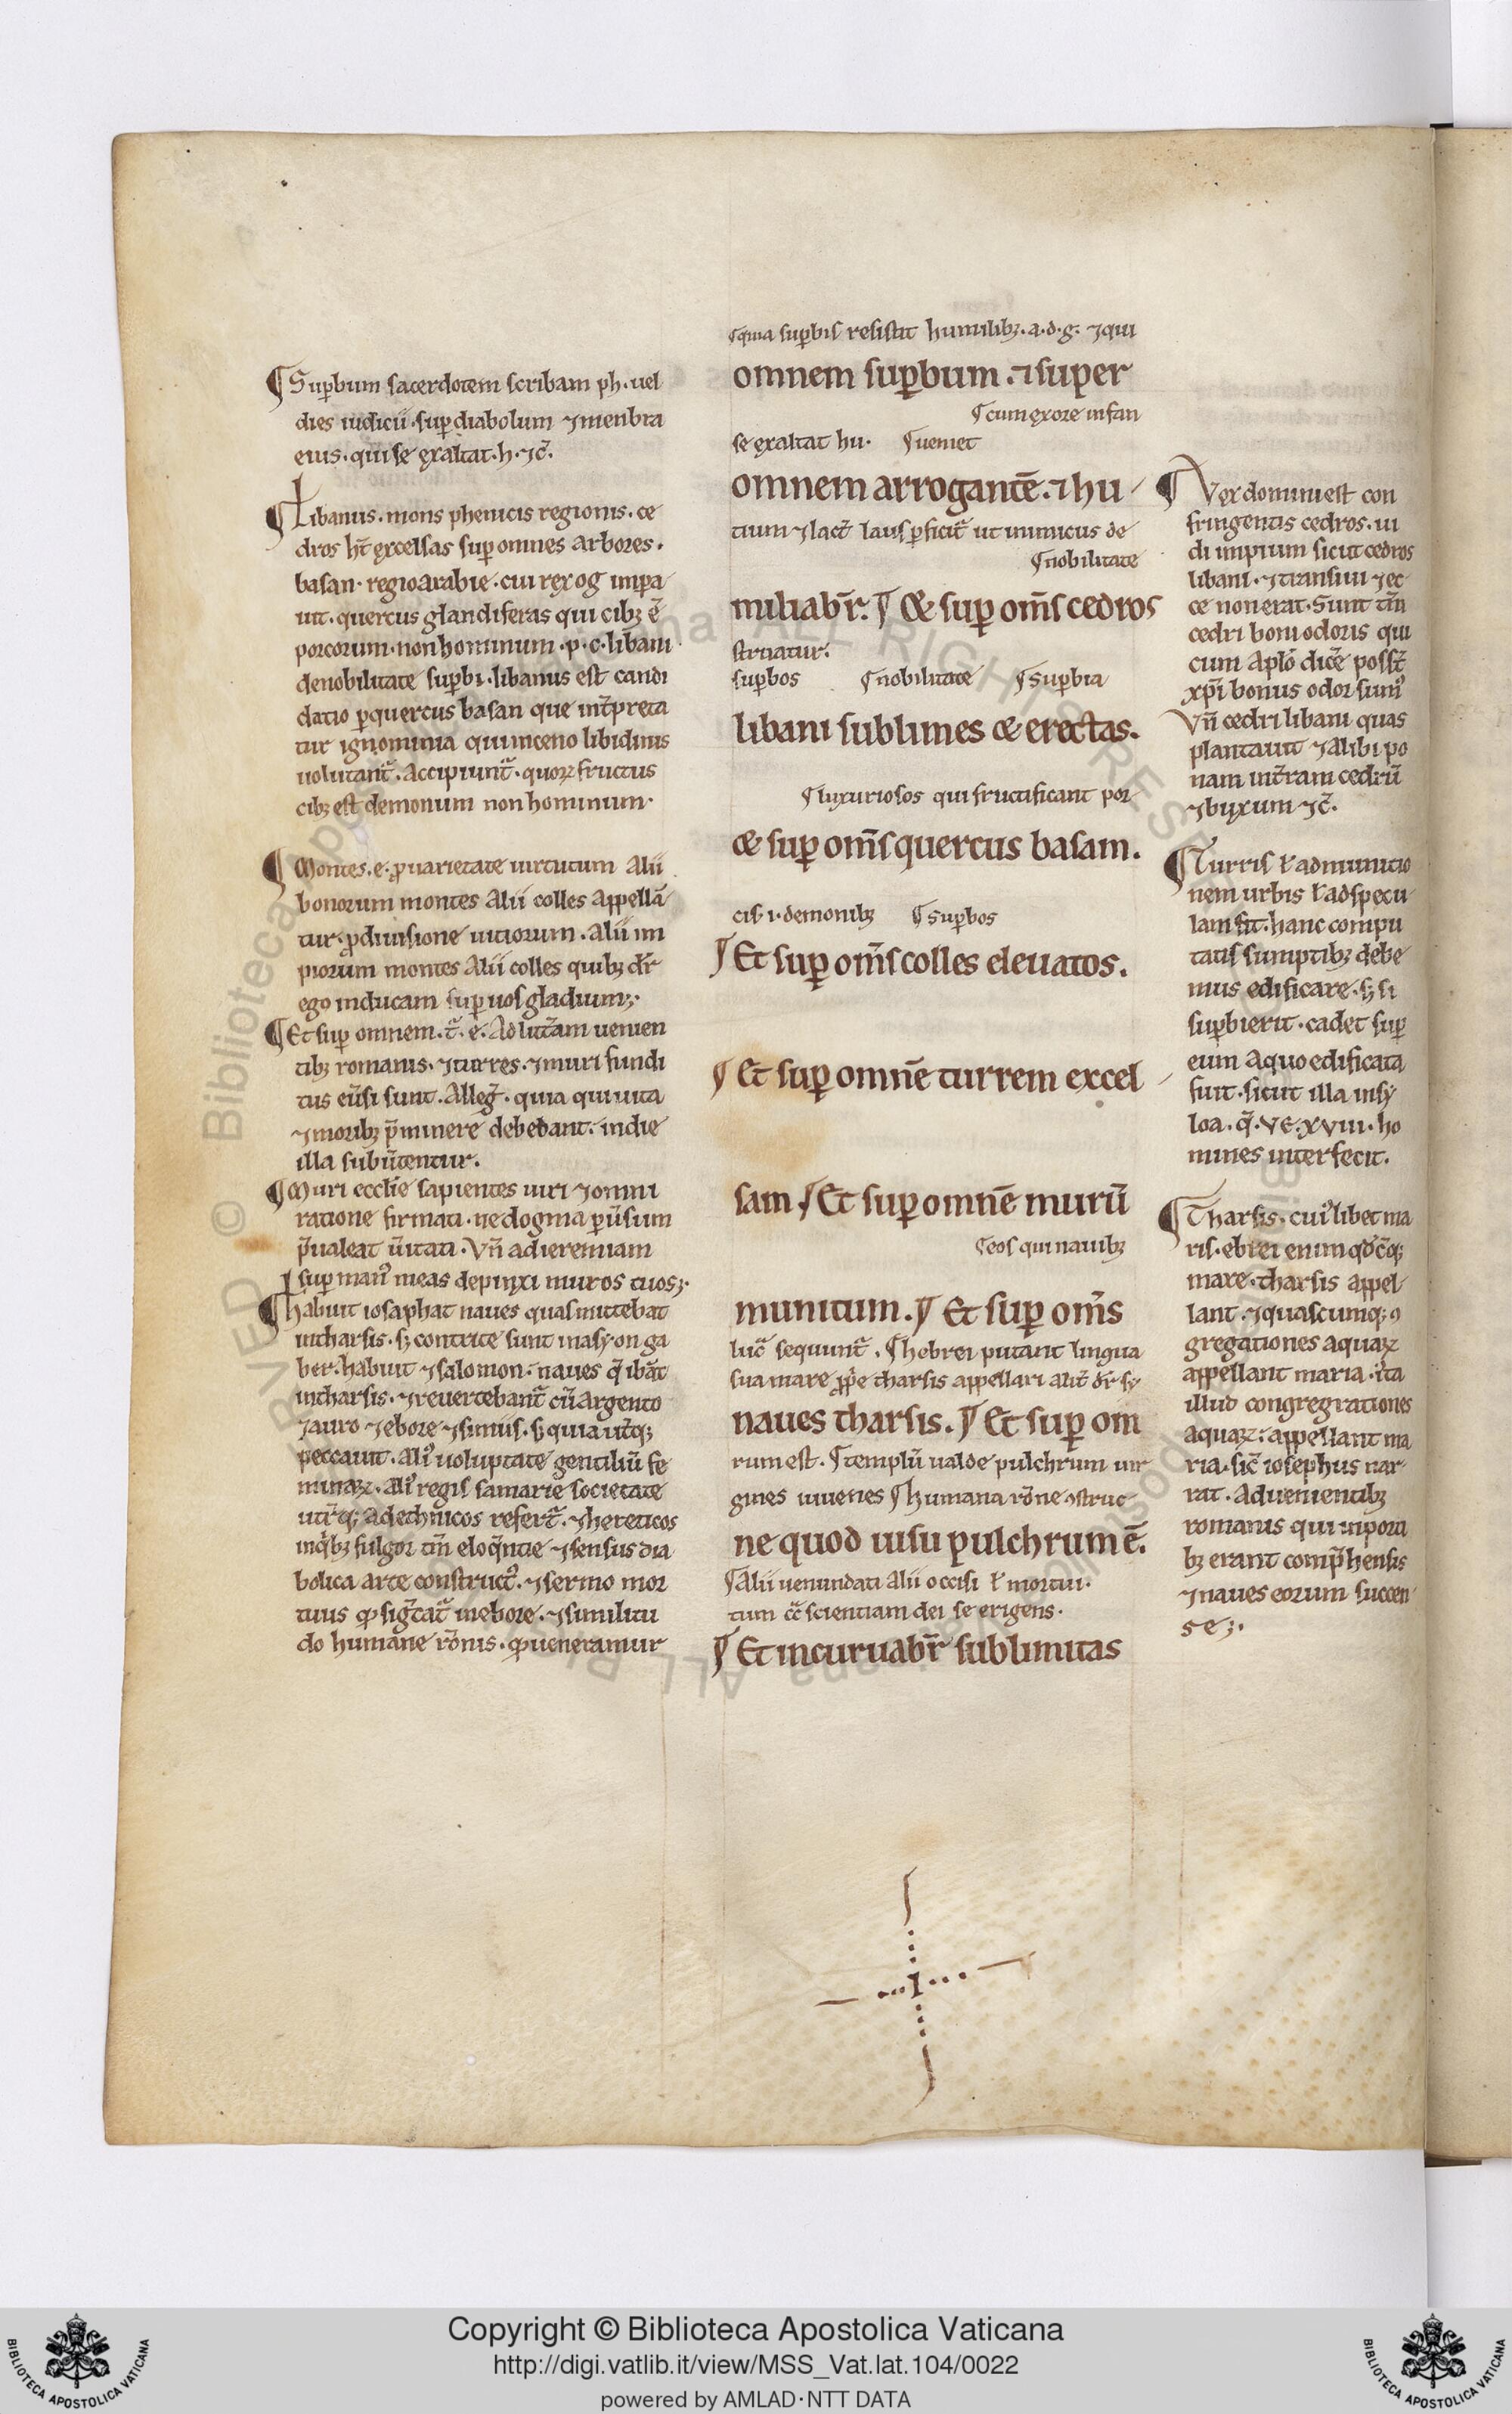 ¶ Suꝑbum sacerdotem scribam ph. uel
dies iudicii. suꝑ diabolum ⁊ menbra
eius. qui se exaltat. h. ⁊c̃.
¶ Libanus. mons phenicis regionis. ce
dros hn̅t excelsas suꝑ omnes arbores.
basan. regio arabie. cui rex og impa
uit. quercus glandiferas qui cibꝫ ē
porcorum. non hominum. p. c. libani.
de nobilitate suꝑbi. libanus est candi
datio ꝑ quercus basan que int̃preta
tur ignominia qui in ceno libidinis
uolutant̃. Accipiunt̃. quoꝝ fructus
cibꝫ est demonum non hominum.
¶ Montes. e. ꝓ uarietate uirtutum alii
bonorum montes alii colles appellā
tur. ꝓ diuisione uitiorum. alii im
piorum montes alii colles quibꝫ dr̄
ego inducam suꝑ uos gladium ⁊.
¶ Et suꝑ omnem. t̃. e. Ad litt̃am uenien
tibꝫ romanis. ⁊ turres. ⁊ muri fundi
tus eũsi sunt. Alleg̃. quia qui uita
⁊ moribꝫ p̃minere debebant. in die
illa subũtentur.
¶ Muri eccl̄ie sapientes uiri ⁊ omni
ratione firmati. ne dogma pũsum
p̃ualeat ũitati. Vn̄ ad ieremiam
suꝑ man᷒ meas depinxi muros tuos ⁊.
¶ habuit iosaphat naues quas mittebat
in tharsis. sꝫ contrite sunt in asyon ga
ber. habuit ⁊ salomon. naues q̃ ibāt
in tharsis. ⁊ reuertebant̃ cū argento
⁊ auro ⁊ ebore ⁊ simiis. sꝫ quia ut̃qꝫ
peccauit. ali᷒ uoluptate gentiliū fe
minaꝝ. ali᷒ regis samarie societate
utr̃qꝫ ad ethnicos refert̃. ⁊ hereticos
in qͥbꝫ fulgor tm̄ eloq̃ntie ⁊ sensus dia
bolica arte construct᷒. ⁊ sermo mor
tuus ꝙ sig̃tat̃ in ebore. ⁊ similitu
do humane rōnis. ꝙ ueneramur
¶ quia suꝑbis resistit humilibꝫ. a. d. g. ⁊ qui
omnem suꝑbum. ⁊ super
¶ cum exore infan
se exaltat hu. ¶ ueniet
omnem arrogantē. ⁊ hu
tium ⁊ lact̃ laus ꝑficit̃ ut inimicus de
¶ nobilitate
miliabr̃. ¶ Et suꝑ om̄s cedros
struatur.
suꝑbos ¶ nobilitate ¶ suꝑbia
libani sublimes et erectas.
¶ luxuriosos qui fructificant por
et suꝑ om̄s quercus basam.
cis. i. demonibꝫ ¶ suꝑbos
¶ Et suꝑ om̄s colles eleuatos.
¶ Et suꝑ omnē turrem excel
sam ¶ Et suꝑ omnē murū
¶ eos qui nauibꝫ
munitum. ¶ Et suꝑ om̄s
luc̃ sequunt̃. ¶ hebrei putant lingua
sua mare ꝓp̃e tharsis appellari alit̃ dr̄ sy
naues tharsis. ¶ Et suꝑ om
rum est. ¶ templū ualde pulchrum uir
gines iuuenes ¶ humana rōne ꝯstruc
ne quod uisu pulchrum ē.
¶ Alii uenundati alii occisi ł mortui.
tum cc̃ scientiam dei se erigens.
¶ Et incuruabr̃ sublimitas
¶ Vox domini est con
fringentis cedros. ui
di impium sicut cedros
libani. ⁊ transiui ⁊ ec
ce non erat. Sunt tm̄
cedri boni odoris qui
cum aplō dicē poss̃t
xp̄i bonus odor sum᷒
Vn̄ cedri libani quas
plantauit ⁊ alibi po
nam int̃ram cedrū
⁊ buxum ⁊c̃.
¶ Turris ł ad munitio
nem urbis ł ad specu
lam fit. hanc compu
tatis sumptibꝫ debe
mus edificare. sꝫ si
suꝑbierit. cadet suꝑ
eum a quo edificata
fuit. sicut illa in sy
loa. q̃. VE. xviii. ho
mines interfecit.
¶ Tharsis. cui᷒ libet ma
ris. ebrei enim qd̃cūqꝫ
mare. tharsis appel
lant. ⁊ quascumqꝫ ꝯ
gregationes aquaꝝ
appellant maria. ita
illud congregrationes
aquaꝝ. appellant ma
ria. sic̃ iosephus nar
rat. Aduenientibꝫ
romanis qui in porti
bꝫ erant comp̃hensis
⁊ naues eorum succen
se ⁊.
Copyright © Biblioteca Apostolica Vaticana
http://digi.vatlib.it/view/MSS_Vat.lat.104/0022
powered by AMLAD·NTT DATA